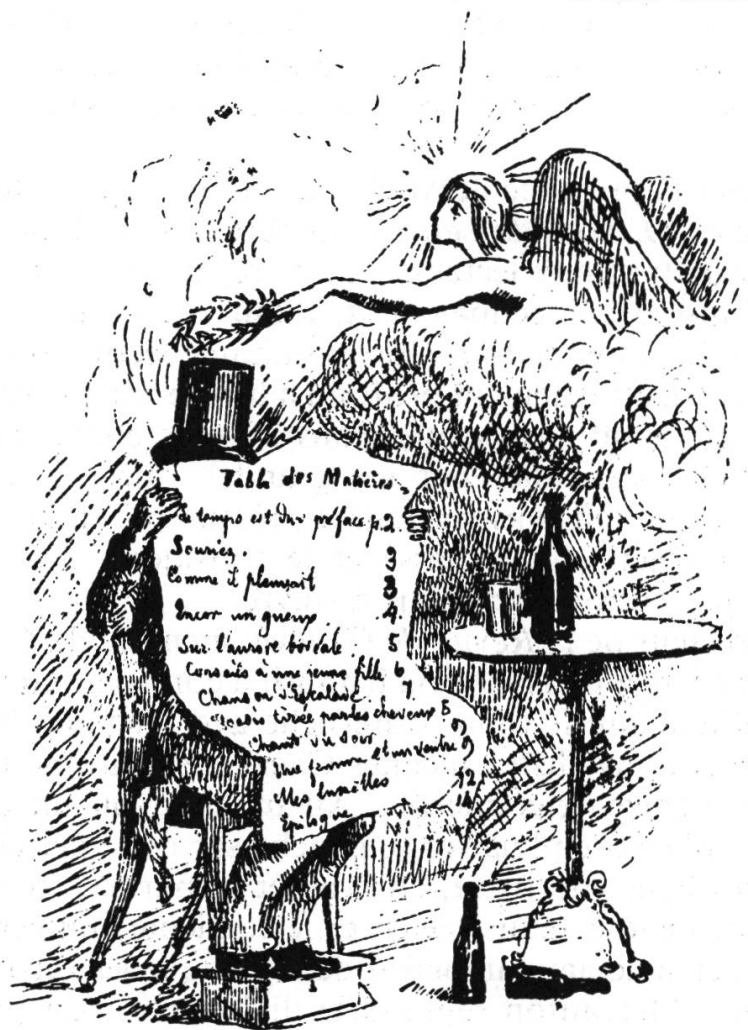 Table des Matières
Le temps est dur préface p. 2
Souriez. 3
Comme il pleuvait 3
Encor un gueux 4.
Sur l'aurore boréale 5
Conseils à une jeune fille 6
Chanson d'Escalade. 7
tirée par les cheveux 8
Chant du soir 9
Une femme et un ventre 9
Mes lunettes 12
Epilogue 14